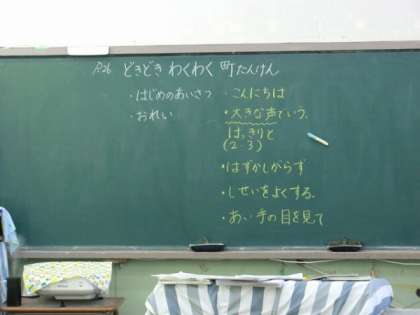 P.26 どきどき わくわく 町たんけん
・はじめのあいさつ
・おれい
・こんにちは
・大きな声でいう。
はっきりと
(2-3)
・はずかしがらず
・しせいをよくする。
・あい手の目を見て